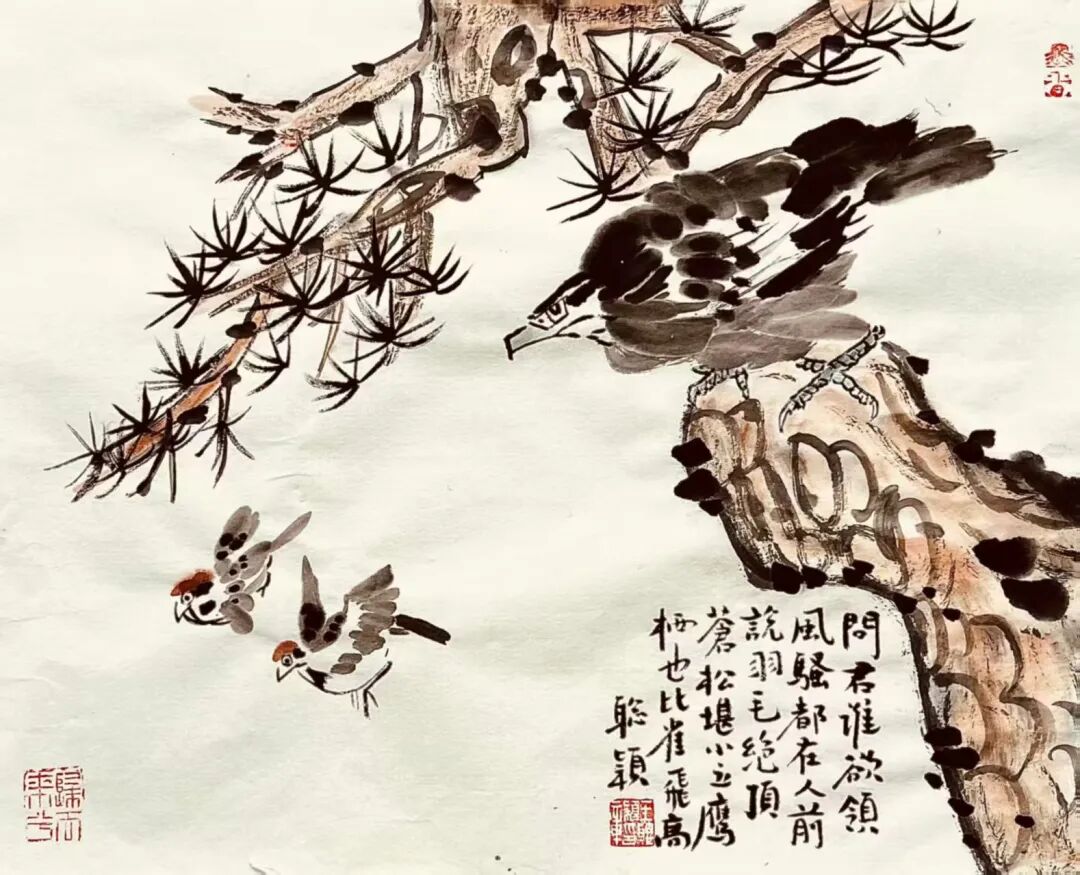 問君誰欲領
風騷都在人前
說羽毛絕頂
蒼松堪小立鷹
栖也比雀飛高
聰穎
歸去
來兮